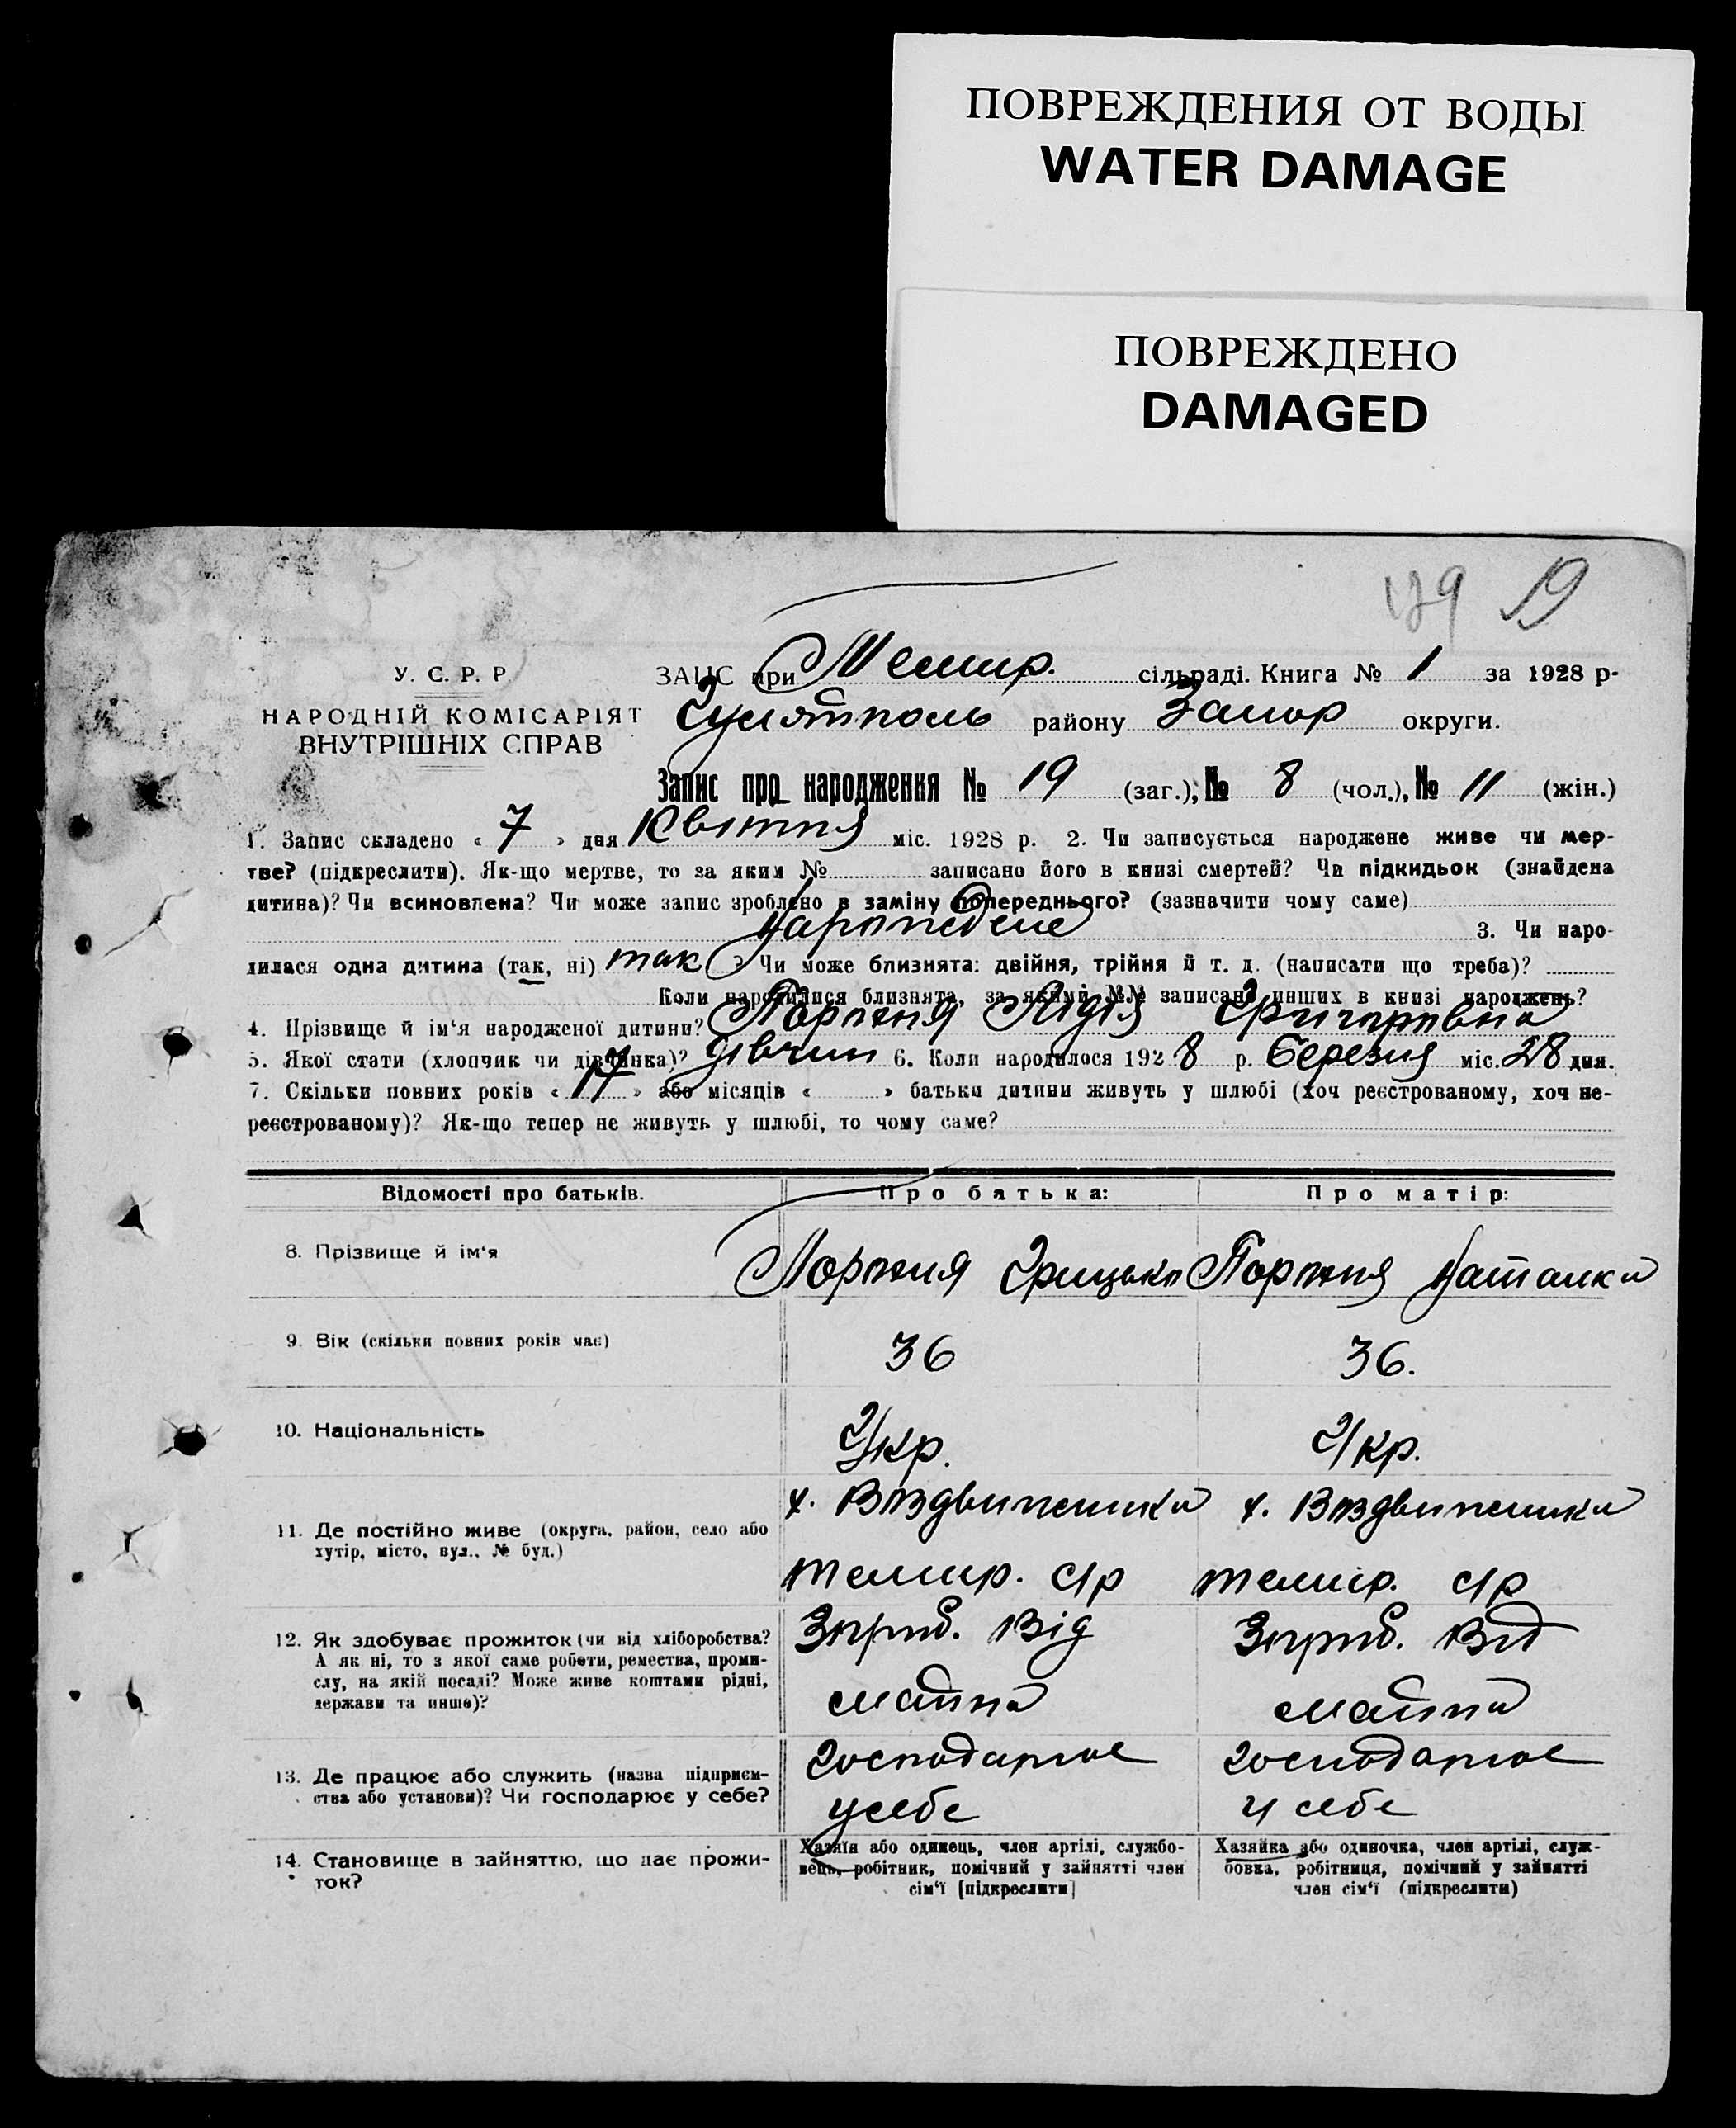 ПОВРЕЖДЕНИЯ ОТ ВОДЫ
WATER DAMAGE
ПОВРЕЖДЕНО
DAMAGED
19
У. С. Р. Р
НАРОДНІЙ КОМІСАРІЯТ
ВНУТРІШНІХ СПРАВ
ЗАГС при Темир. сільраді. Книга № 1 за 1928 р-
Гуляйполь району Запор округи.
Запис про народження № 19 (заг.), № 8 (чол.), № 11 (жін.)
1. Запис складено « 7 » дня Квітня міс. 1928 р. 2. Чи записується народжене живе чи мер-
тве? (підкреслити). Як-що мертве, то за яким № записано його в книзі смертей? Чи підкидьок (знайдена
дитина)? Чи всиновлена? Чи може запис зроблено в заміну попереднього? (зазначити чому саме)
народжене 3. Чи наро-
дилася одна дитина (так, ні) так ? Чи може близнята: двійня, трійня й т. д. (написати що треба)?
Коли народилися близнята, за якими №№ записано инших в книзі народжень?
4. Прізвище й ім'я народженої дитини? Порожня Лідія Григоровна
5. Якої стати (хлопчик чи дівчинка)? дівчин 6. Коли народилося 1928 р. Березня міс. 28 дня.
7. Скільки повних років « 17 » або місяців « » батьки дитини живуть у шлюбі (хоч реєстрованому, хоч не-
реєстрованому)? Як-що тепер не живуть у шлюбі, то чому саме?
Відомості про батьків. Про батька: Про матір:
8. Прізвище й ім'я Порожня Грицько Порожня Наталка
9. Вік (скільки повних років має) 36 36.
10. Національність Укр. Укр.
11. Де постійно живе (округа, район, село або
хутір, місто, вул., № буд.)
х. Воздвиженка х. Воздвиженка
темир. с/р темир. с/р
12. Як здобуває прожиток (чи від хліборобства?
А як ні, то з якої саме роботи, ремества, проми-
слу, на якій посаді? Може живе коштами рідні,
держави та инше)?
Зароб. Від Зароб. Від
майна майна
13. Де працює або служить (назва підприєм-
ства або установи)? Чи господарює у себе?
господарює господарює
у себе у себе
14. Становище в зайняттю, що дає прожи-
ток?
Хазяїн або одинець, член артілі, службо-
вець, робітник, помічний у зайнятті член
сім'ї [підкреслити]
Хазяйка або одиночка, член артілі, служ-
бовка, робітниця, помічний у зайнятті
член сім'ї (підкреслити)